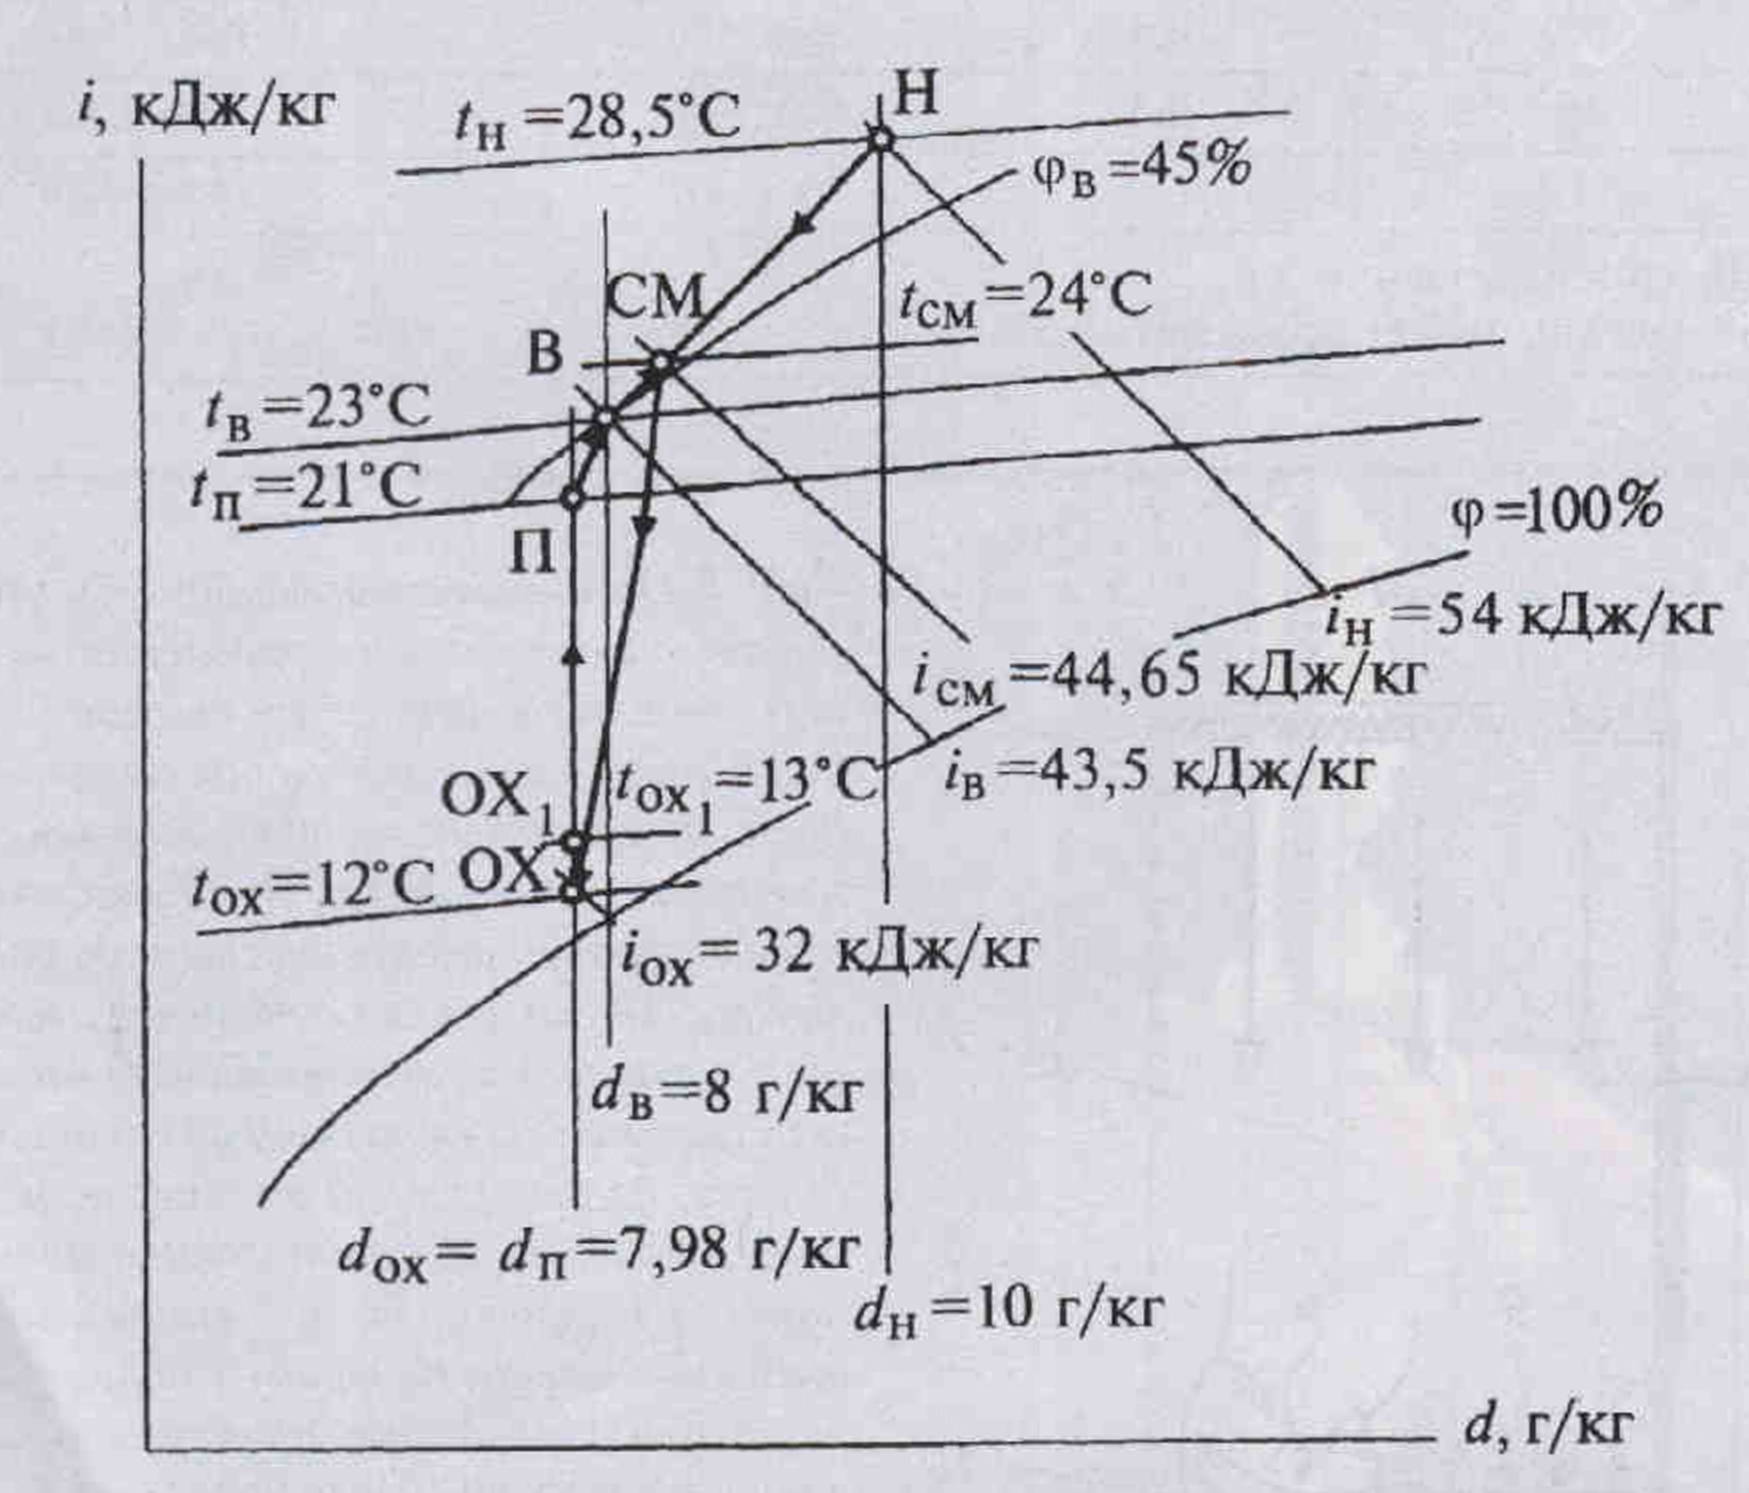 i, кДж/кг
tН =28,5°C
Н
φВ =45%
СМ
tСМ =24°C
В
tВ =23°C
tП =21°C
П
φ=100%
iН =54 кДж/кг
iСМ =44,65 кДж/кг
iВ =43,5 кДж/кг
ОХ1
tОХ1 =13°C
tОХ=12°C
ОХ
iОХ= 32 кДж/кг
dВ=8 г/кг
dОХ= dП=7,98 г/кг
dН =10 г/кг
d, г/кг